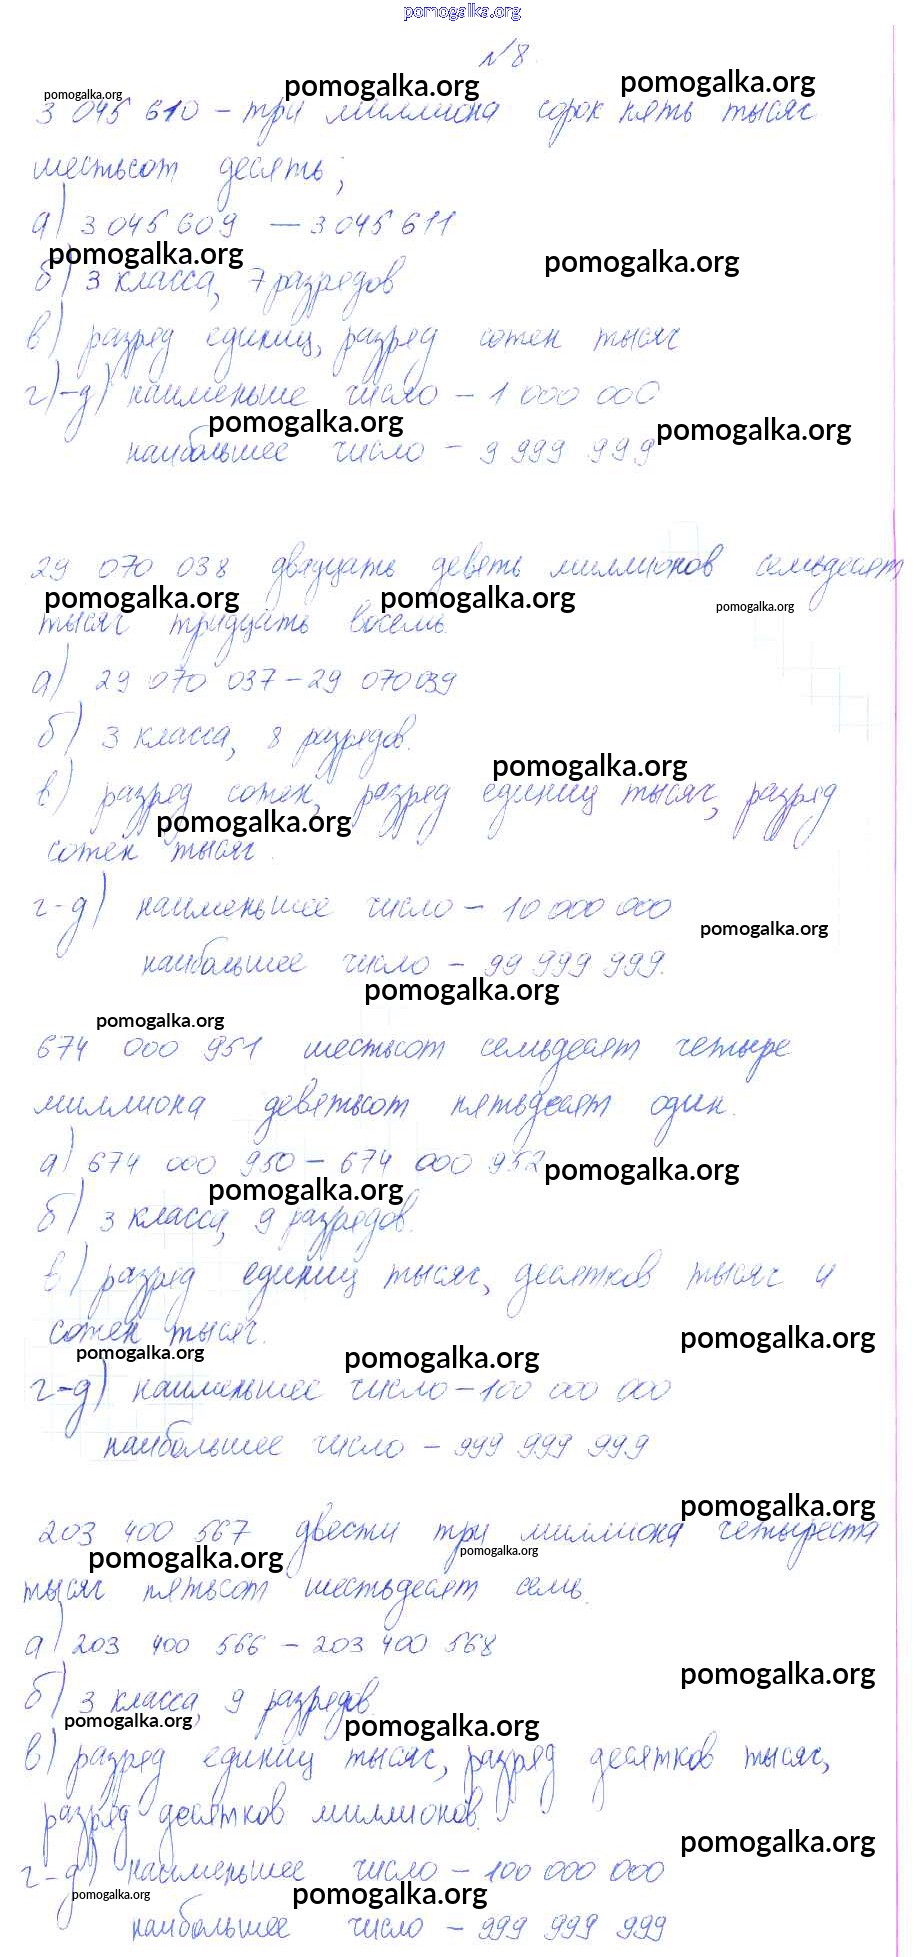 pomogalka.org
№8.
pomogalka.org pomogalka.org pomogalka.org
3 045 610 – три миллиона сорок пять тысяч
шестьсот десять;
а) 3 045 609 — 3 045 611
pomogalka.org pomogalka.org
б) 3 класса, 7 разрядов
в) разряд единиц, разряд сотен тысяч
г)-д) наименьше число – 1 000 000
pomogalka.org pomogalka.org
наибольшее число – 9 999 999
29 070 038 двадцать девять миллионов семьдесят
pomogalka.org pomogalka.org pomogalka.org
тысяч тридцать восемь.
а) 29 070 037 – 29 070 039
б) 3 класса, 8 разрядов.
pomogalka.org
в) разряд сотен, разряд единиц тысяч, разряд
pomogalka.org
сотен тысяч.
г-д) наименьшее число – 10 000 000
pomogalka.org
наибольшее число – 99 999 999.
pomogalka.org
pomogalka.org
674 000 951 шестьсот семьдесят четыре
миллиона девятьсот пятьдесят один.
а) 674 000 950 – 674 000 952
pomogalka.org
pomogalka.org
б) 3 класса, 9 разрядов.
в) разряд единиц тысяч, десятков тысяч и
сотен тысяч.
pomogalka.org pomogalka.org pomogalka.org
г-д) наименьшее число – 100 000 000
наибольшее число – 999 999 999
pomogalka.org
203 400 567 двести три миллиона четыреста
pomogalka.org pomogalka.org
тысяч пятьсот шестьдесят семь.
а) 203 400 566 – 203 400 568
pomogalka.org
б) 3 класса, 9 разрядов.
pomogalka.org pomogalka.org
в) разряд единиц тысяч, разряд десятков тысяч,
разряд десятков миллионов.
pomogalka.org
г-д) наименьшее число – 100 000 000
pomogalka.org pomogalka.org
наибольшее число – 999 999 999